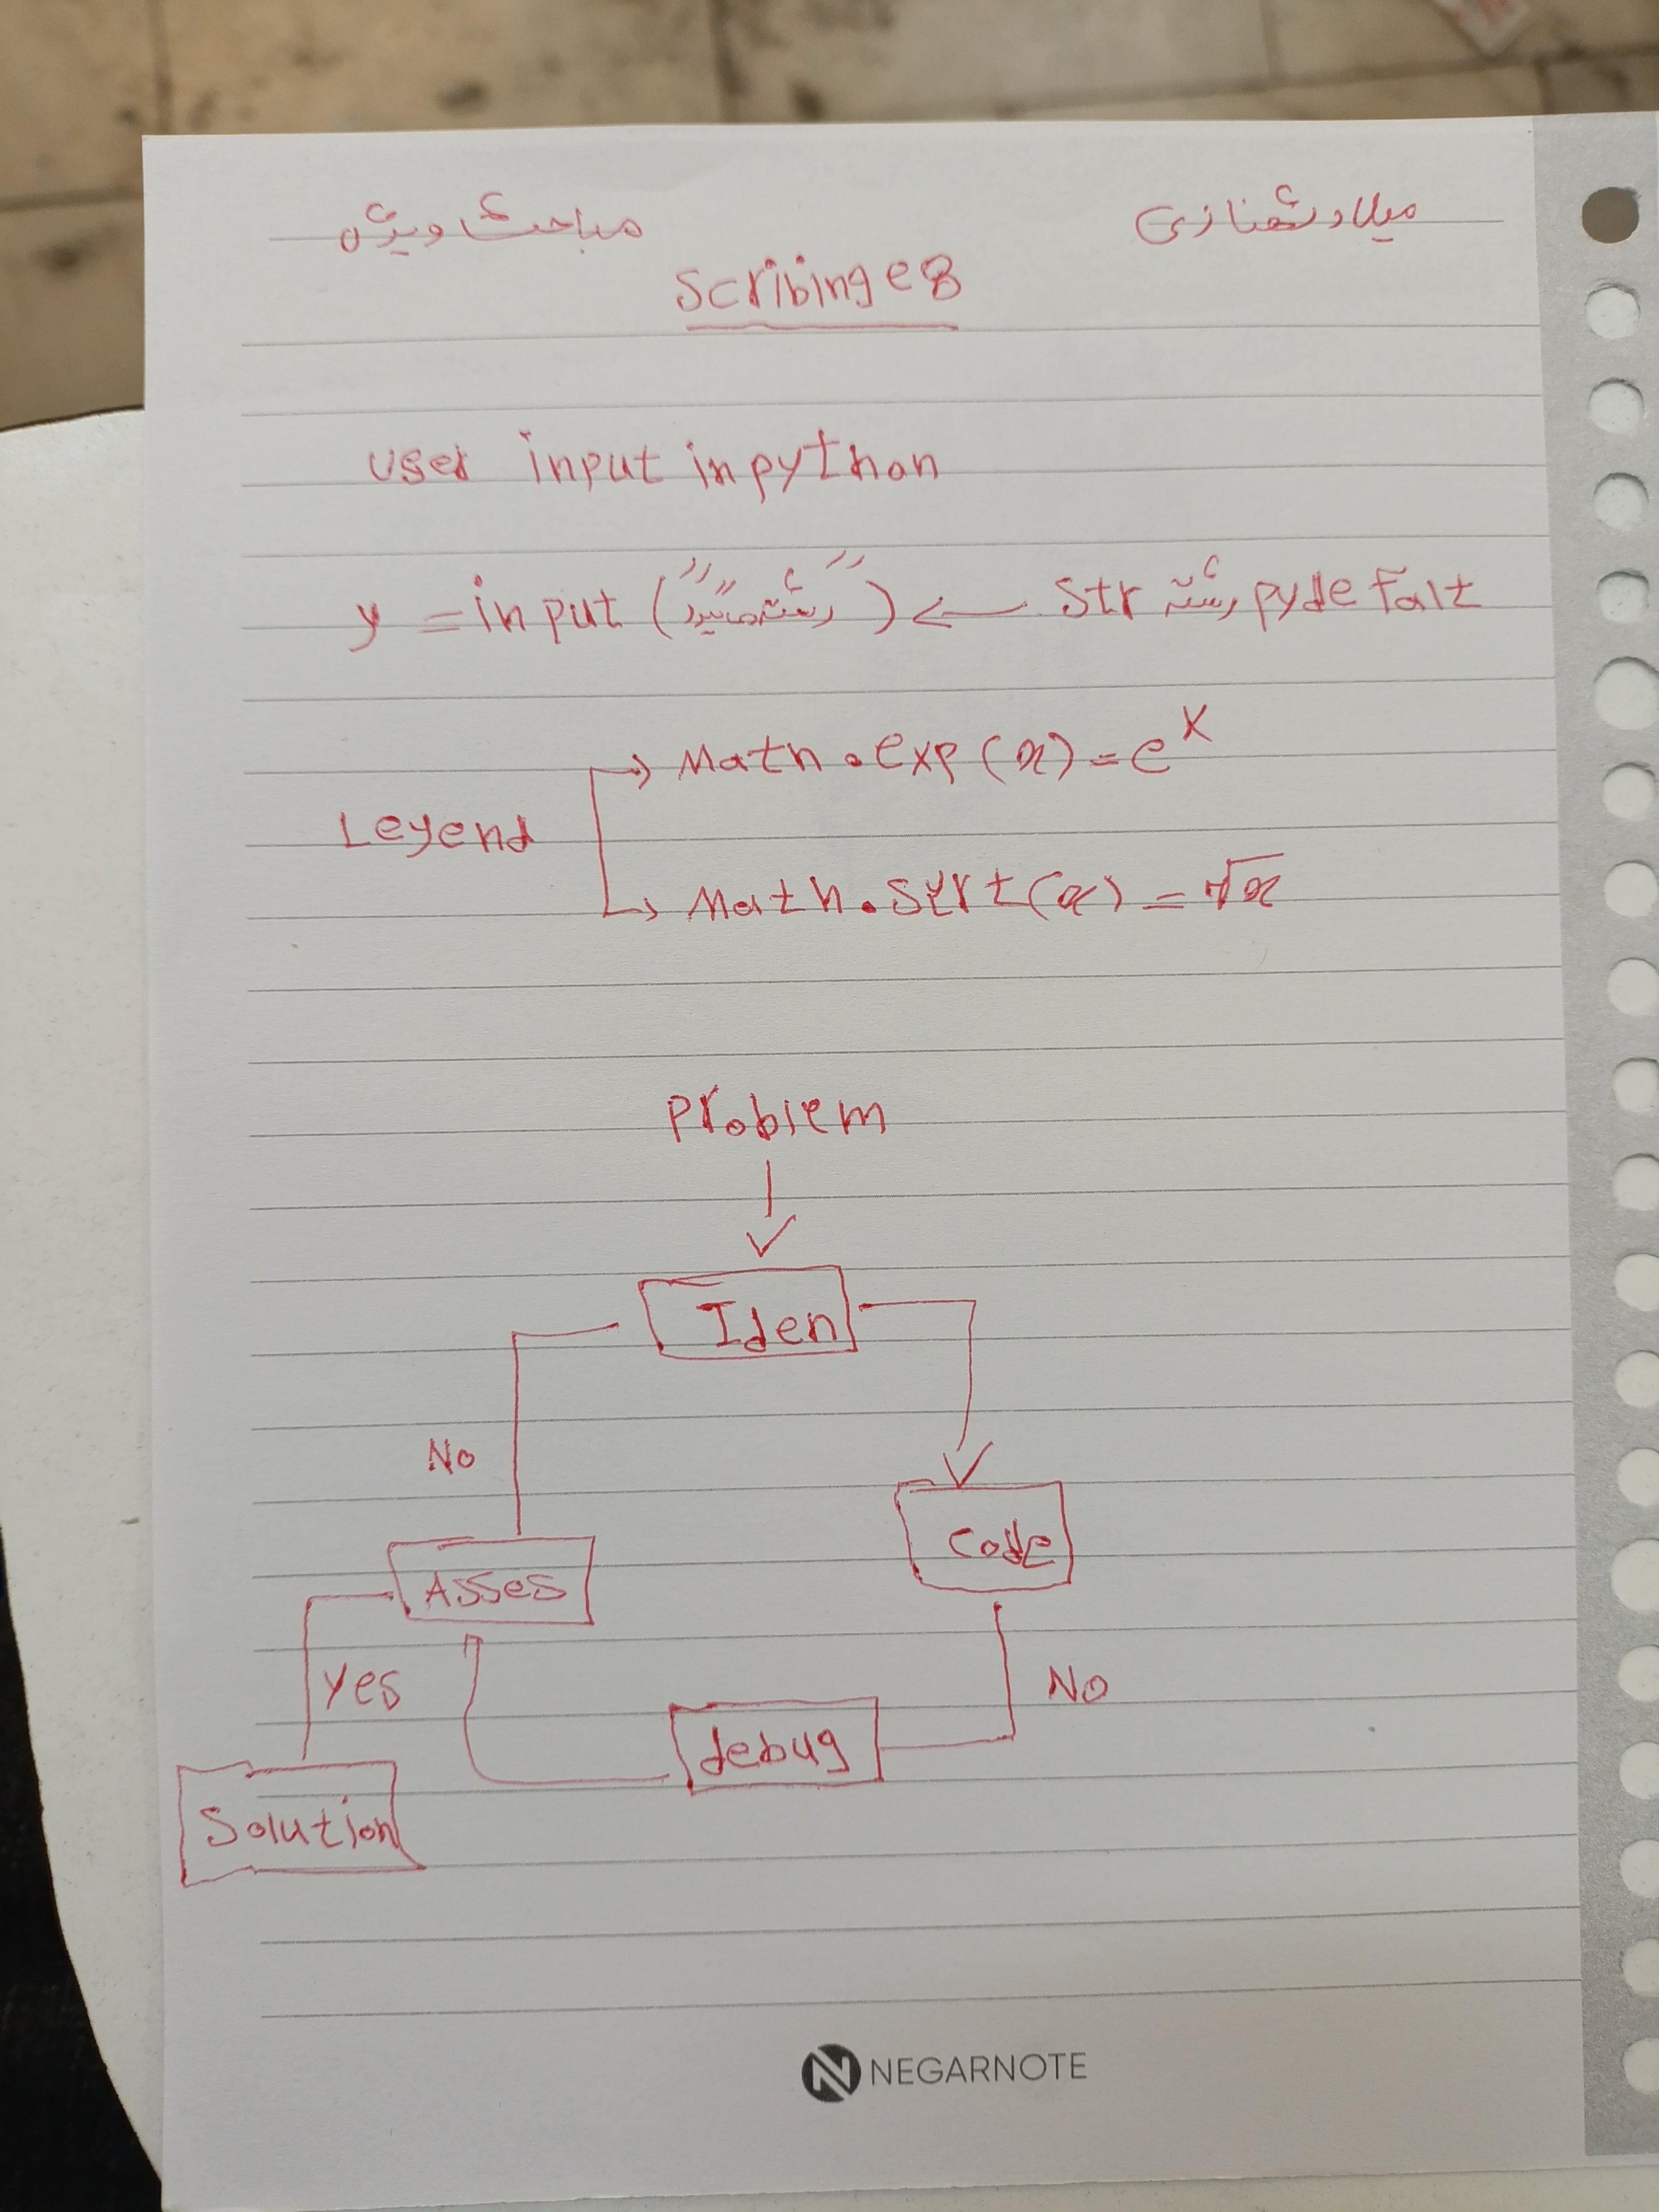 میلاد شهنازی مباحث ویژه
Scribing e8
user input in python
y = input ("رشته میگیرد") ← Str رشته py defalt
Leyend
→ Math.exp(x) = e^x
→ Math.sqrt(x) = √x
Problem
Iden
No
Code
Asses
Yes
No
debug
Solution
NEGARNOTE